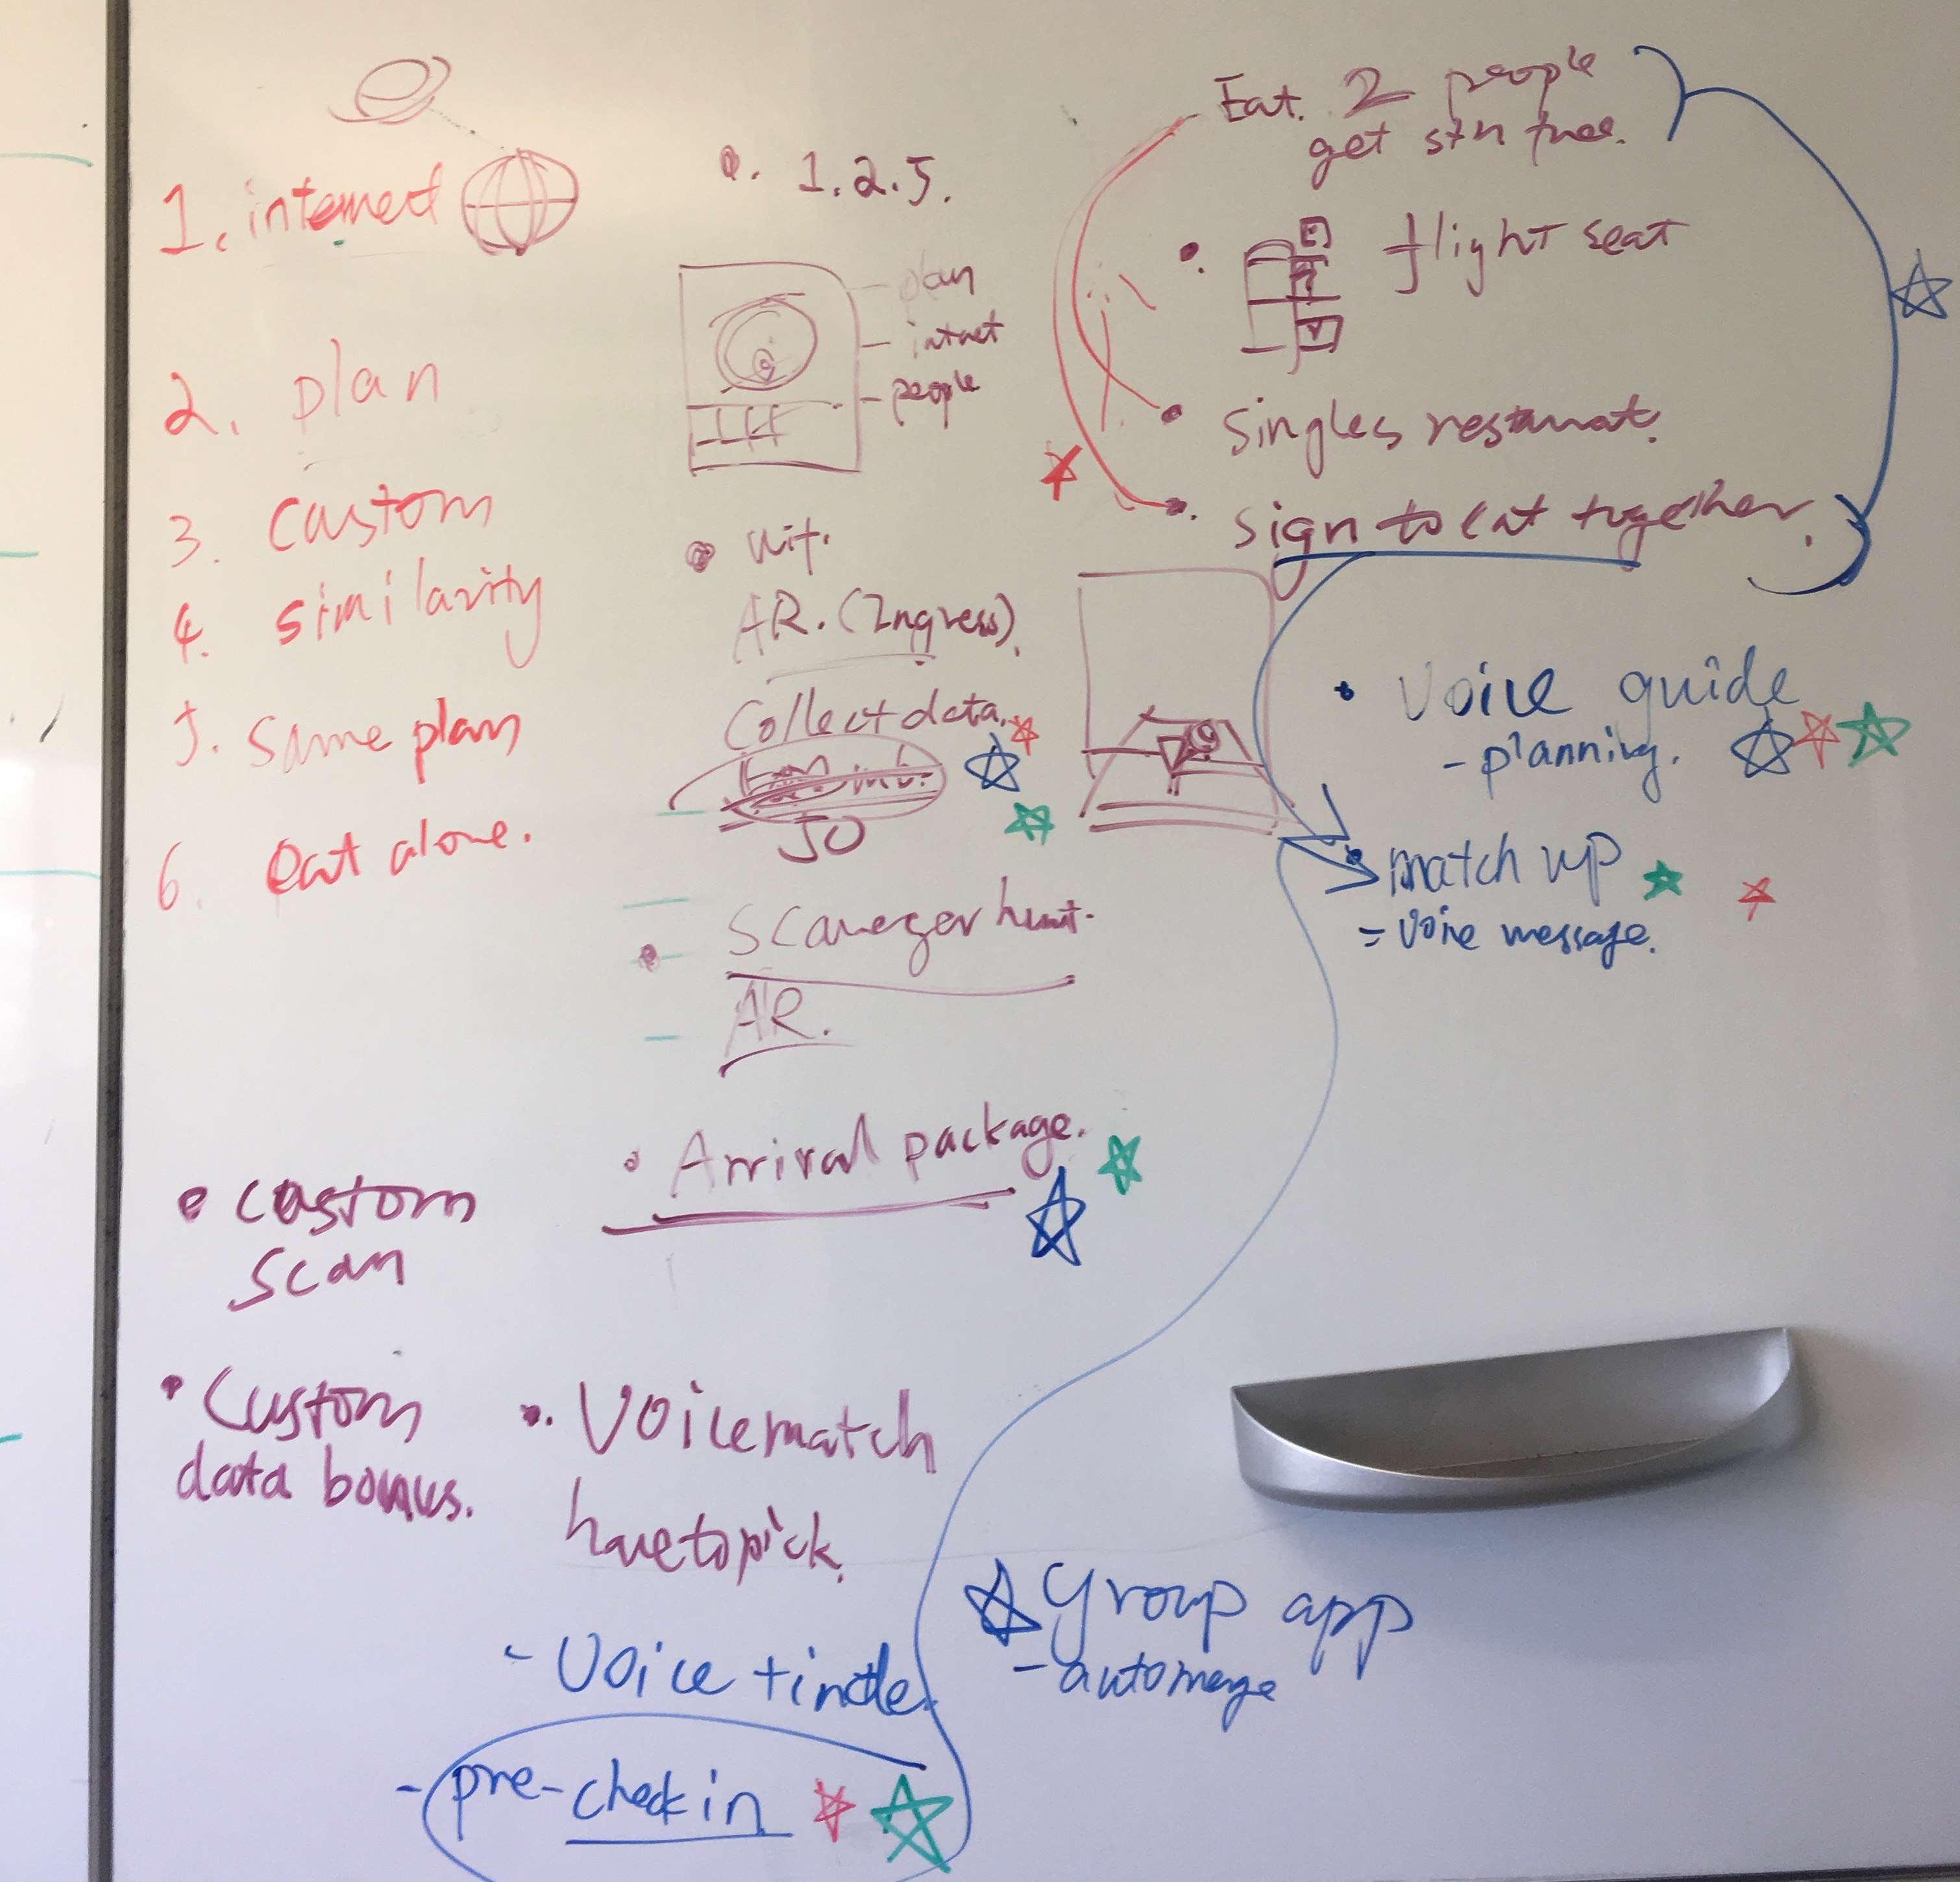 1. internet
2. plan
3. custom
4. similarity
5. same plan
6. eat alone.
• custom
scan
• Custom
data bonus.
•. 1.2.5.
plan
- intnet
- people
AR. (Ingress).
Collect data.
50
• Scavegerhunt.
AR.
• Arrival package.
•. Voicematch
havetopick.
- Voice tinder
- pre-checkin
Eat. 2 people
get free.
• flight seat
• Singles restaurat.
•. Sign to eat together.
• Voice guide
- planning.
• match up
= voice message.
Group app
- automerge